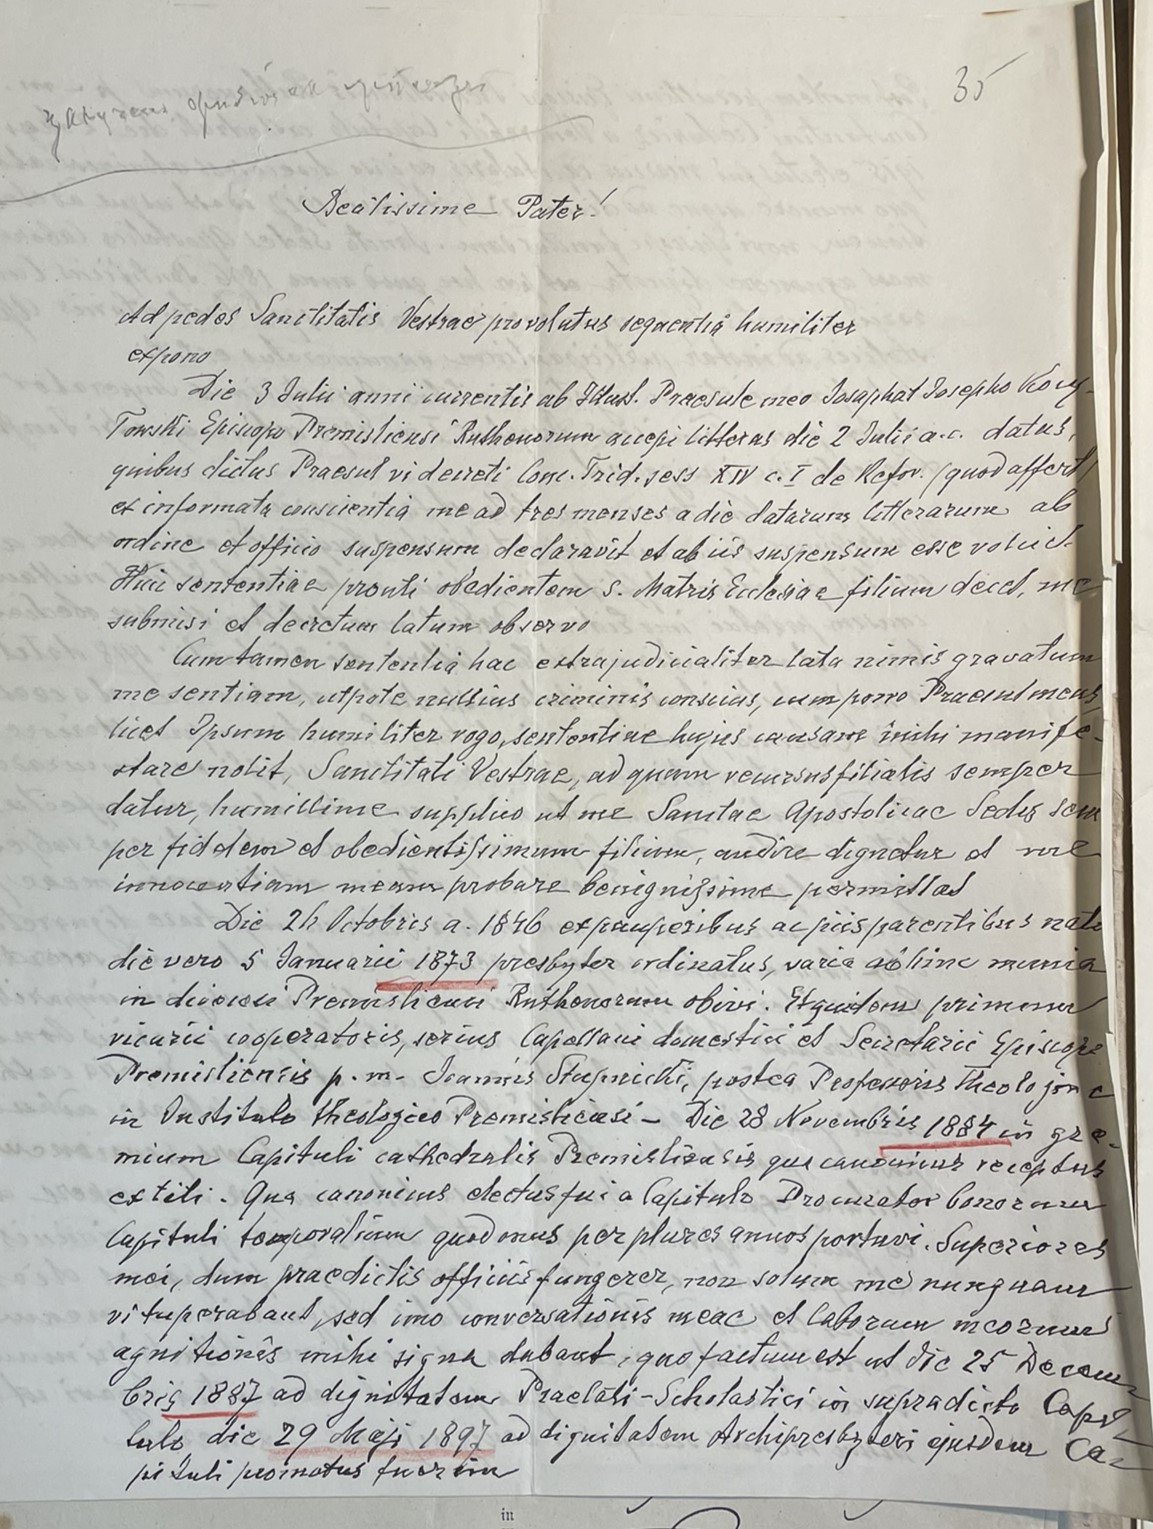 35
Beatissime Pater!
Ad pedes Sanctitatis Vestrae provolutus sequentia humiliter
expono
Die 3 Julii anni currentis ab Illust. Praesule meo Josaphat Josepho Kocy-
Towski Episcopo Premisliensi Ruthenorum accepi litteras die 2 Julii a.c. datas,
quibus dictus Praesul vi decreti Conc. Trid. sess XIV c. I de Refor. (quod affert)
ex informata conscientia me ad tres menses a die datarum litterarum ab
ordine et officio suspensum declaravit et ab iis suspensum esse voluit.
Huic sententiae, prouti obedientem S. Matris Ecclesiae filium decet, me
submisi et decretum latum observo
Cum tamen sententia hac extrajudicialiter lata nimis gravatum
me sentiam, utpote nullius criminis conscius, cum porro Praesul meus,
licet Ipsum humiliter rogo, sententiae hujus causam mihi manife-
stare nolit, Sanctitati Vestrae, ad quam recursus filialis semper
datur, humillime supplico ut me Sanctae Apostolicae Sedis sem
per fidelem et obedientissimum filium, audire dignetur et
innocentiam meam probare benignissime permittat
Die 26 Octobris a. 1846 ex pauperibus ac piis parentibus natus
die vero 5 Januarii 1873 presbyter ordinatus, varia abhinc munia
in dioecesi Premisliensi Ruthenorum obivi. Et quidem primum
vicarii cooperatoris, serius Capellani domestici et Secretarii Episcopi
Premisliensis p. m. Joannis Stupnicki, postea Professoris Theologiae
in Instituto theologico Premisliensi - Die 28 Novembris 1884 in gre-
mium Capituli cathedralis Premisliensis qua canonicus receptus
extiti. Qua canonicus electus fui a Capitulo Procurator bonorum
Capituli temporalium quod onus per plures annos portavi. Superiores
mei, dum praedictis officiis fungerer, non solum me nunquam
vituperabant, sed imo conversationis meae et laborum meorum
agnitionis mihi signa dabant, quo factum est ut die 25 Decem-
bris 1887 ad dignitatem Praelati-Scholastici in supradicto Capi-
tulo die 29 Maji 1897 ad dignitatem Archipresbyteri ejusdem Ca-
pituli promotus fuerim
in